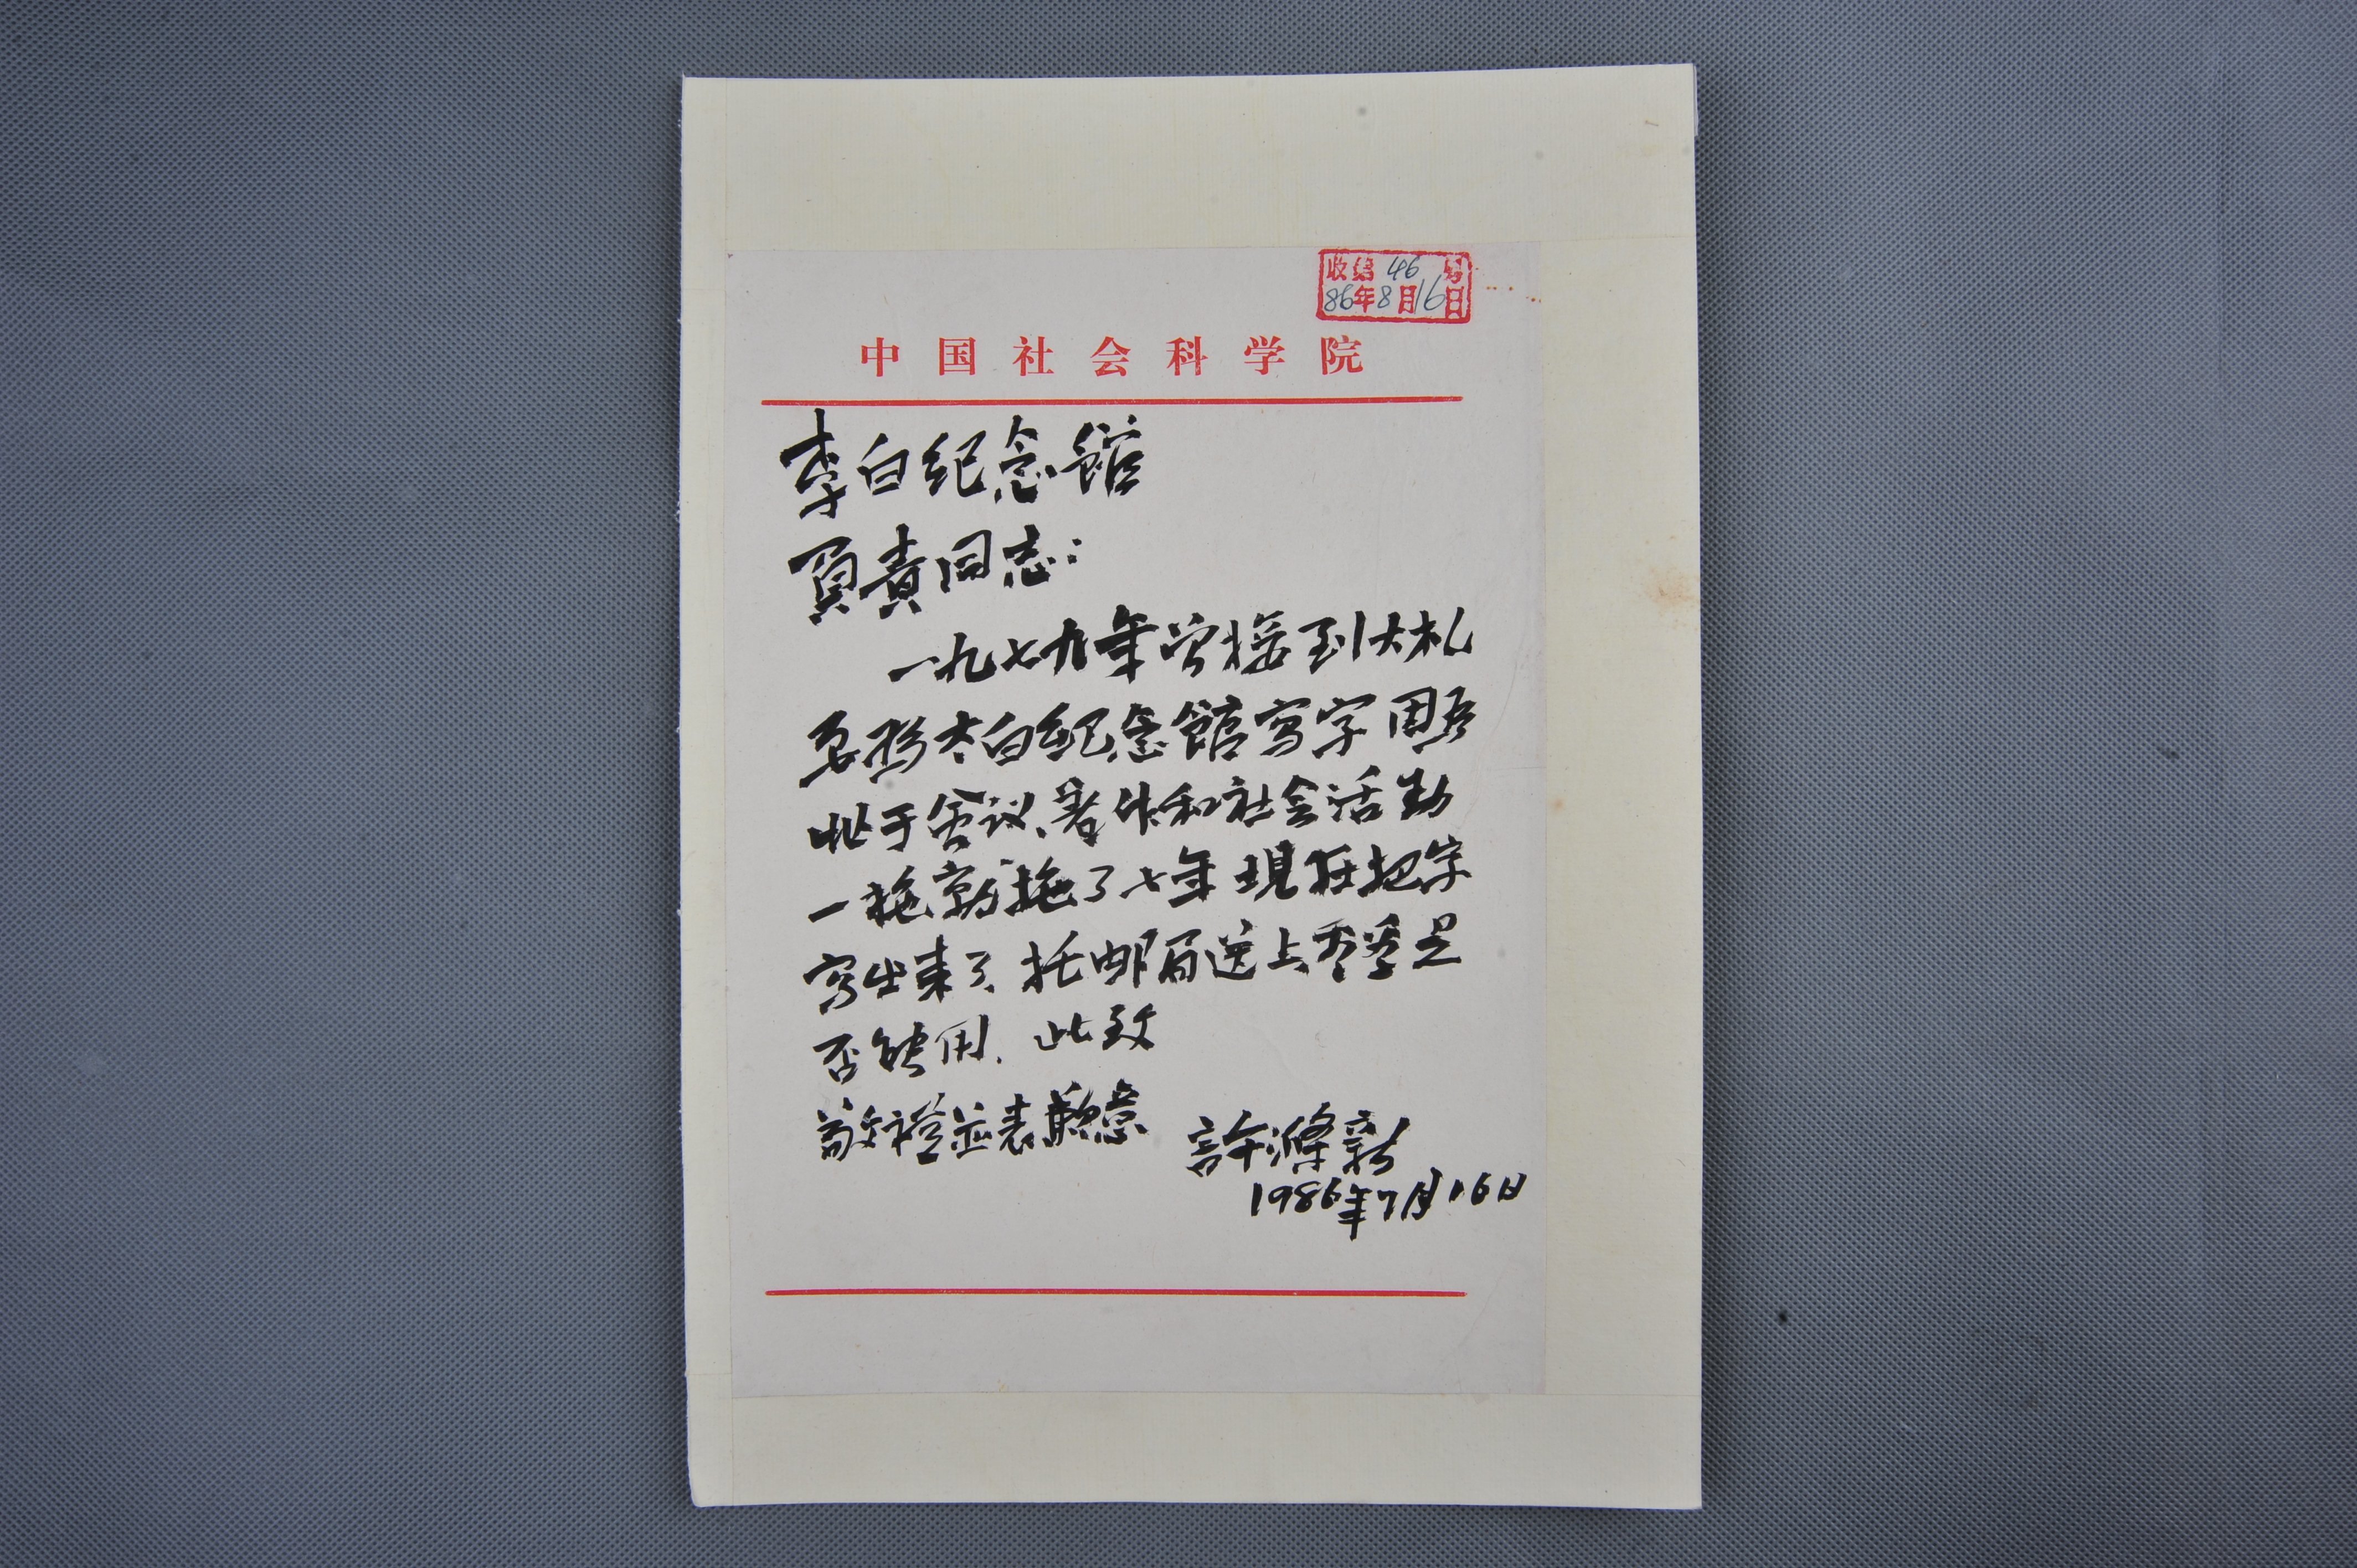 收编 46 号
86年8月16日
中国社会科学院
李白纪念館
負責同志：
一九七九年曾接到大札
要我为太白纪念館写字因忙
于会议、著作和社会活动
一拖就拖了七年現在把字
写出来了、托邮局送上不知是
否能用. 此致
敬禮並表歉意
許滌新
1986年7月16日